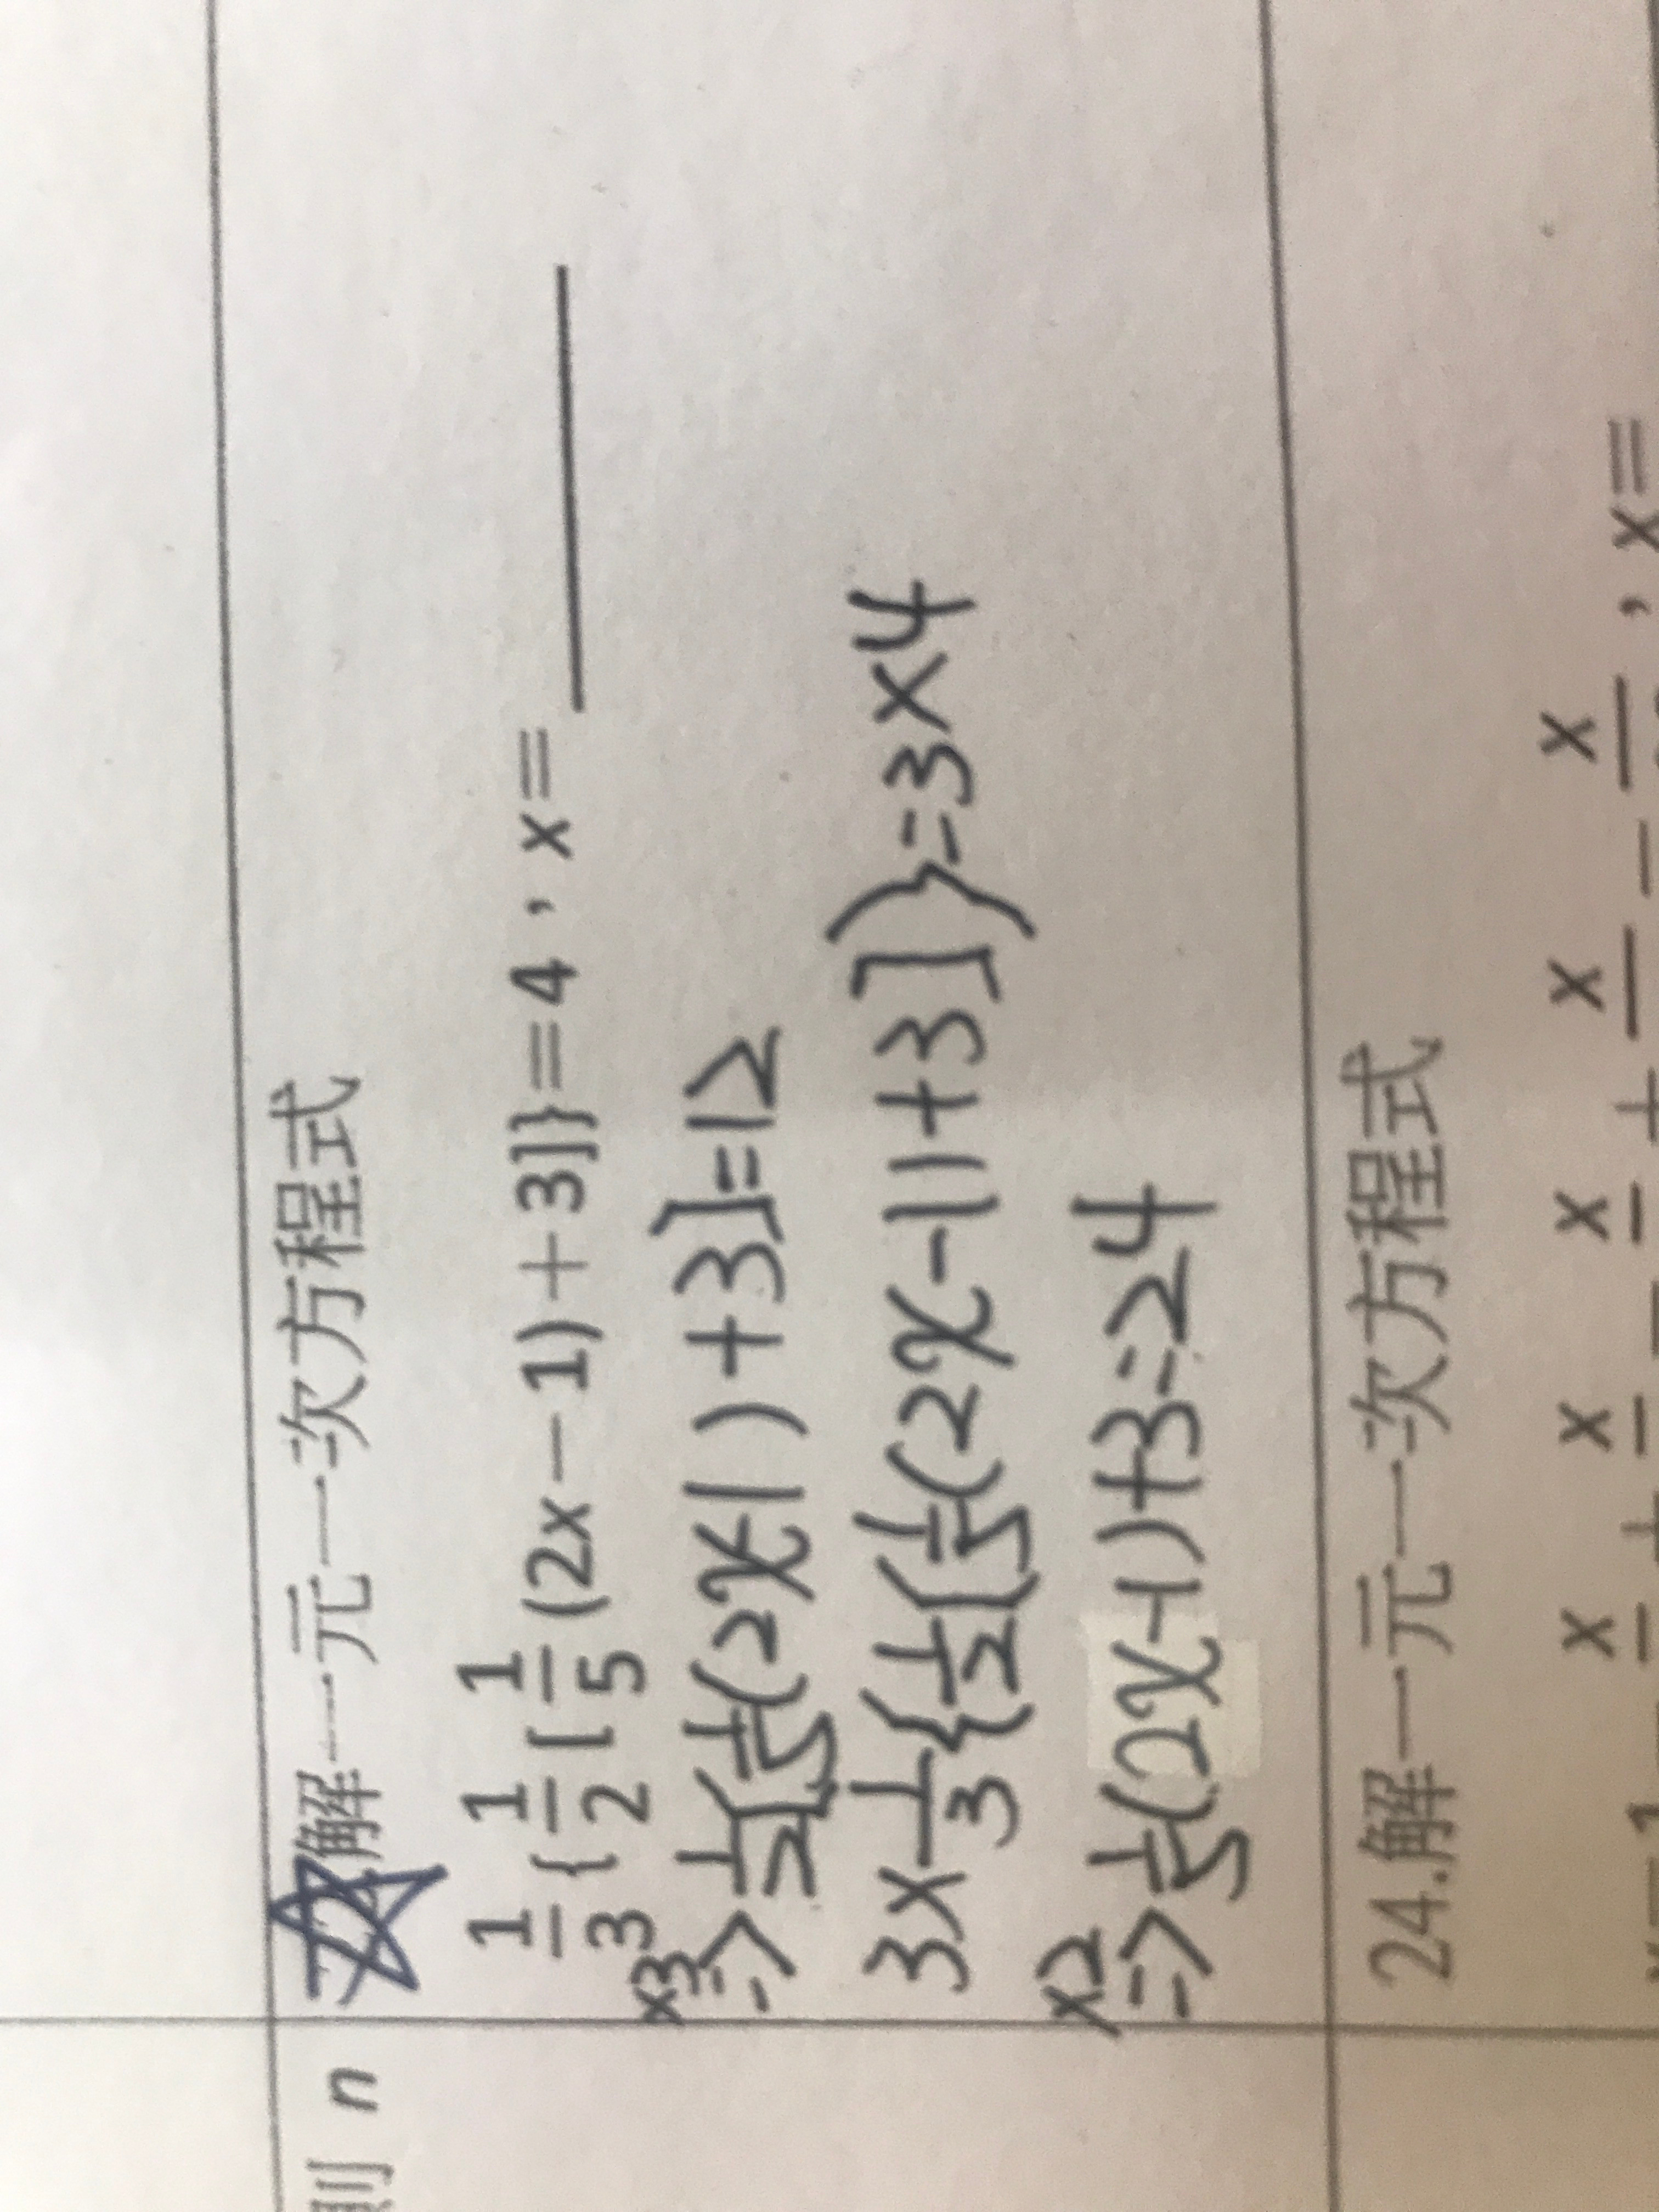 則 n
解一元一次方程式
1/3{1/2[1/5(2x−1)+3]}=4,x=
x3
=> 1/2[1/5(2x-1)+3]=12
3x1/3{1/2[1/5(2x-1)+3]}=3x4
x2
=> 1/5(2x-1)+3=24
24.解一元一次方程式
x x x x x , x=